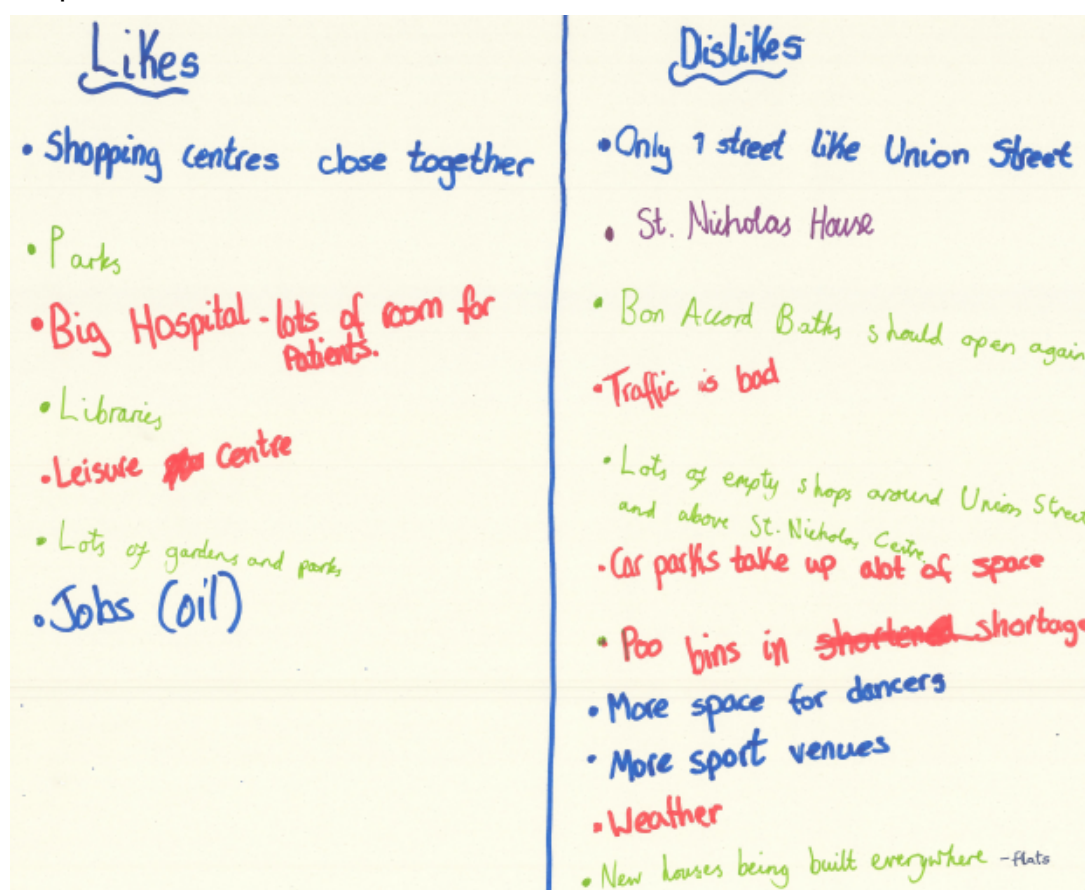 Likes
• Shopping centres close together
• Parks
• Big Hospital - lots of room for
patients.
• Libraries
• Leisure centre
• Lots of gardens and parks
• Jobs (oil)
Dislikes
• Only 1 street like Union Street
• St. Nicholas House
• Bon Accord Baths should open again
• Traffic is bad
• Lots of empty shops around Union Street
and above St. Nicholas Centre.
• Car parks take up alot of space
• Poo bins in shortage
• More space for dancers
• More sport venues
• Weather
• New houses being built everywhere - flats